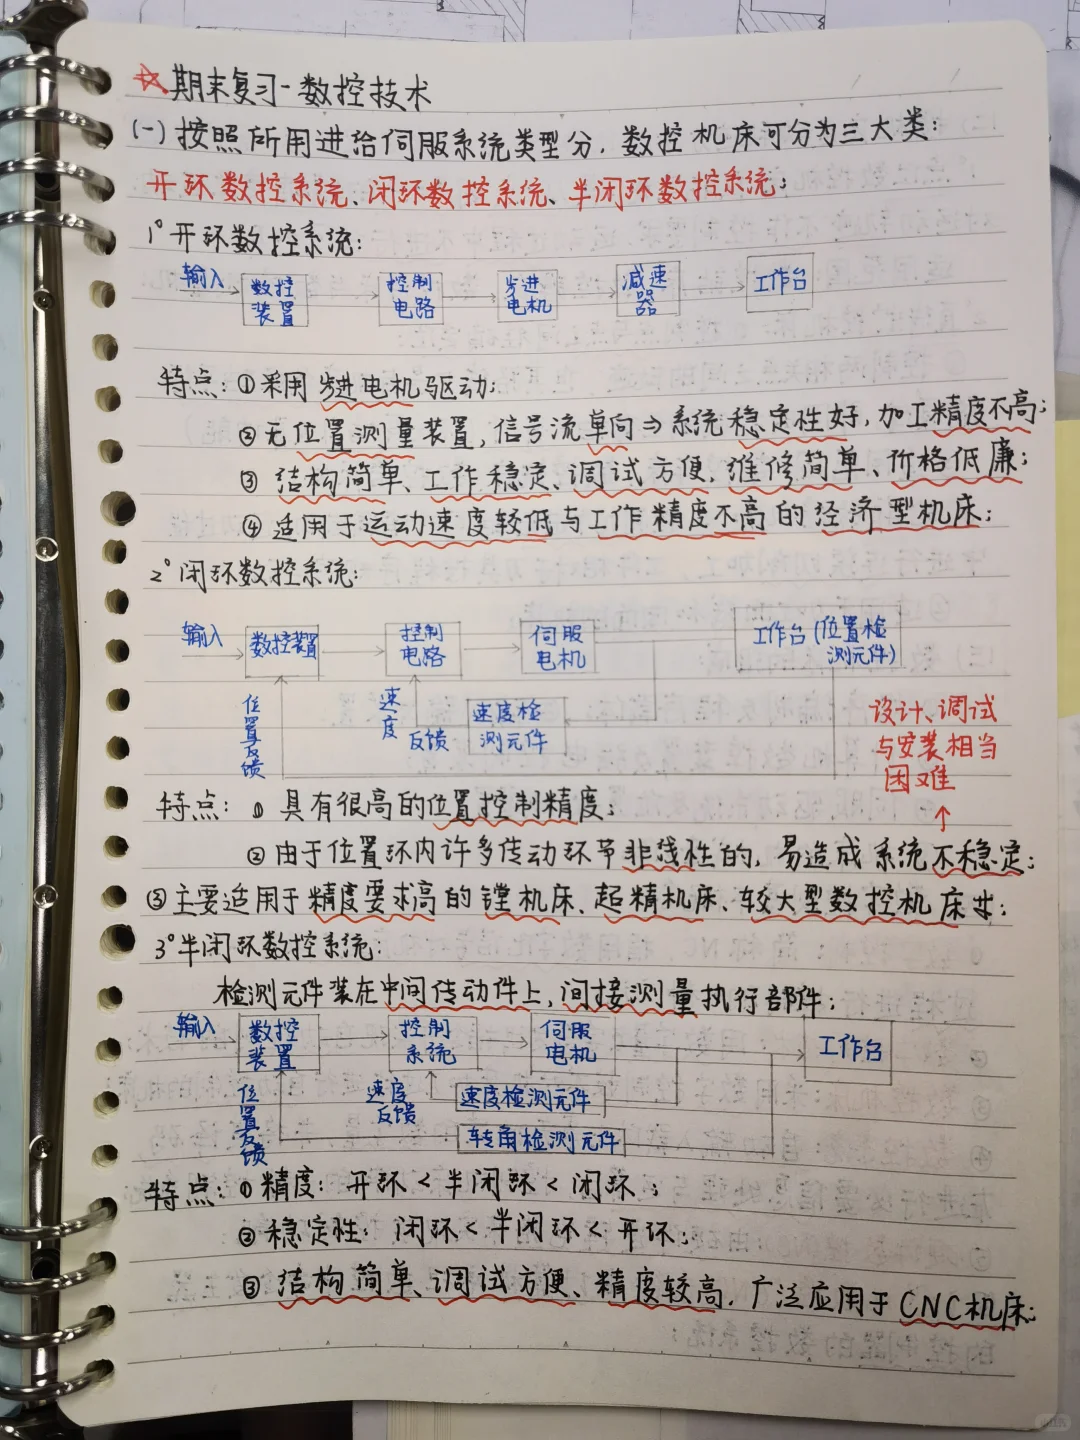 ☆期末复习-数控技术
(一)按照所用进给伺服系统类型分,数控机床可分为三大类:
开环数控系统、闭环数控系统、半闭环数控系统;
1°开环数控系统:
输入 数控装置 控制电路 步进电机 减速器 工作台
特点:①采用步进电机驱动;
②无位置测量装置,信号流单向⇒系统稳定性好,加工精度不高;
③结构简单、工作稳定、调试方便、维修简单、价格低廉;
④适用于运动速度较低与工作精度不高的经济型机床;
2°闭环数控系统:
输入 数控装置 控制电路 伺服电机 工作台(位置检测元件)
位置反馈 速度反馈 速度检测元件
设计、调试
与安装相当
困难
特点:①具有很高的位置控制精度;
②由于位置环内许多传动环节非线性的,易造成系统不稳定;
③主要适用于精度要求高的镗机床、超精机床、较大型数控机床廿;
3°半闭环数控系统:
检测元件装在中间传动件上,间接测量执行部件;
输入 数控装置 控制系统 伺服电机 工作台
位置反馈 速度反馈 速度检测元件
转角检测元件
特点:①精度:开环<半闭环<闭环;
②稳定性:闭环<半闭环<开环;
③结构简单、调试方便、精度较高,广泛应用于CNC机床;